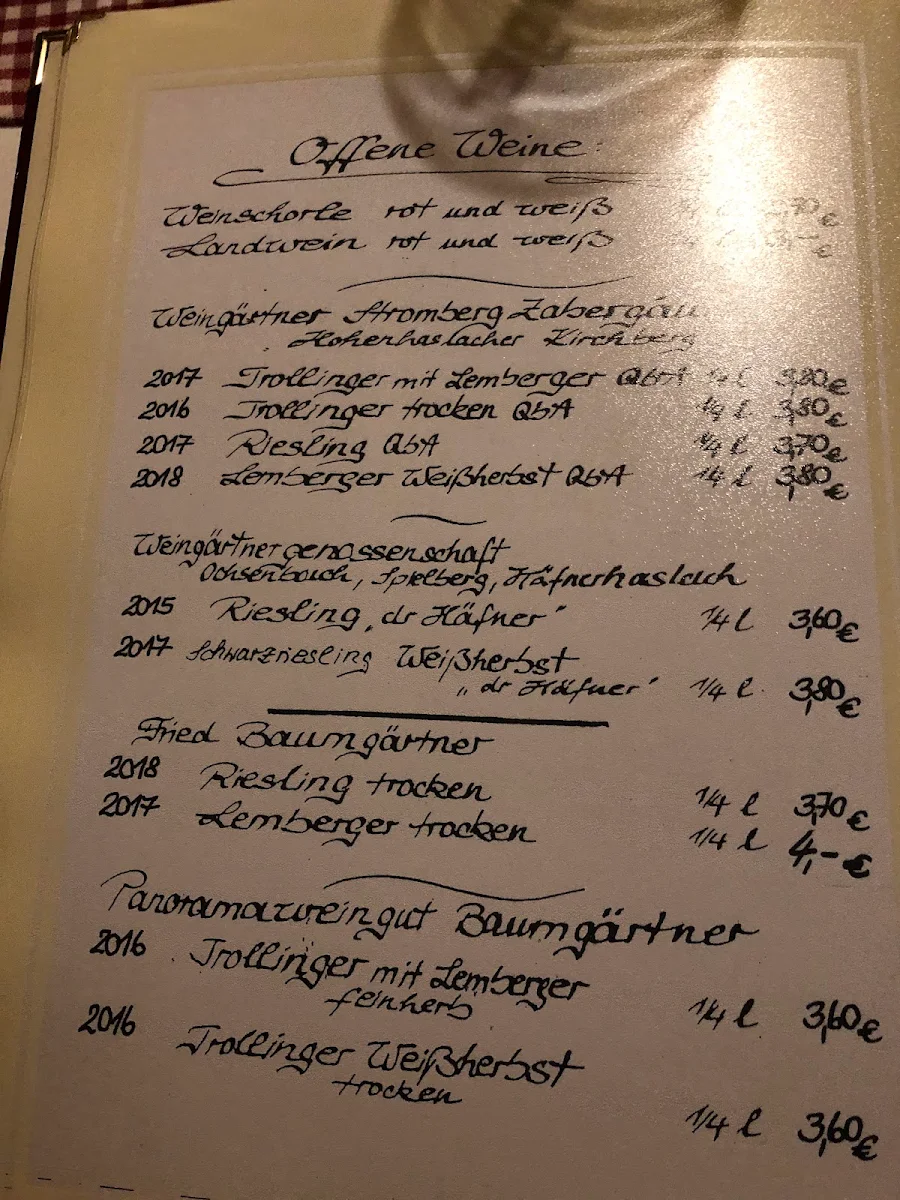 Offene Weine:
Weinschorle rot und weiß 2,70 €
Landwein rot und weiß €
Weingärtner Stromberg Zabergäu
Hohenhaslacher Kirchberg
2017 Trollinger mit Lemberger QbA 1/4 l 3,80 €
2016 Trollinger trocken QbA 1/4 l 3,80 €
2017 Riesling QbA 1/4 l 3,70 €
2018 Lemberger Weißherbst QbA 1/4 l 3,80 €
Weingärtnergenossenschaft
Ochsenbach, Spielberg, Häfnerhaslach
2015 Riesling „dr Häfner" 1/4 l 3,60 €
2017 Schwarzriesling Weißherbst
„dr Häfner" 1/4 l 3,80 €
Fried Baumgärtner
2018 Riesling trocken 1/4 l 3,70 €
2017 Lemberger trocken 1/4 l 4,- €
Panoramaweingut Baumgärtner
2016 Trollinger mit Lemberger
feinherb 1/4 l 3,60 €
2016 Trollinger Weißherbst
trocken
1/4 l 3,60 €